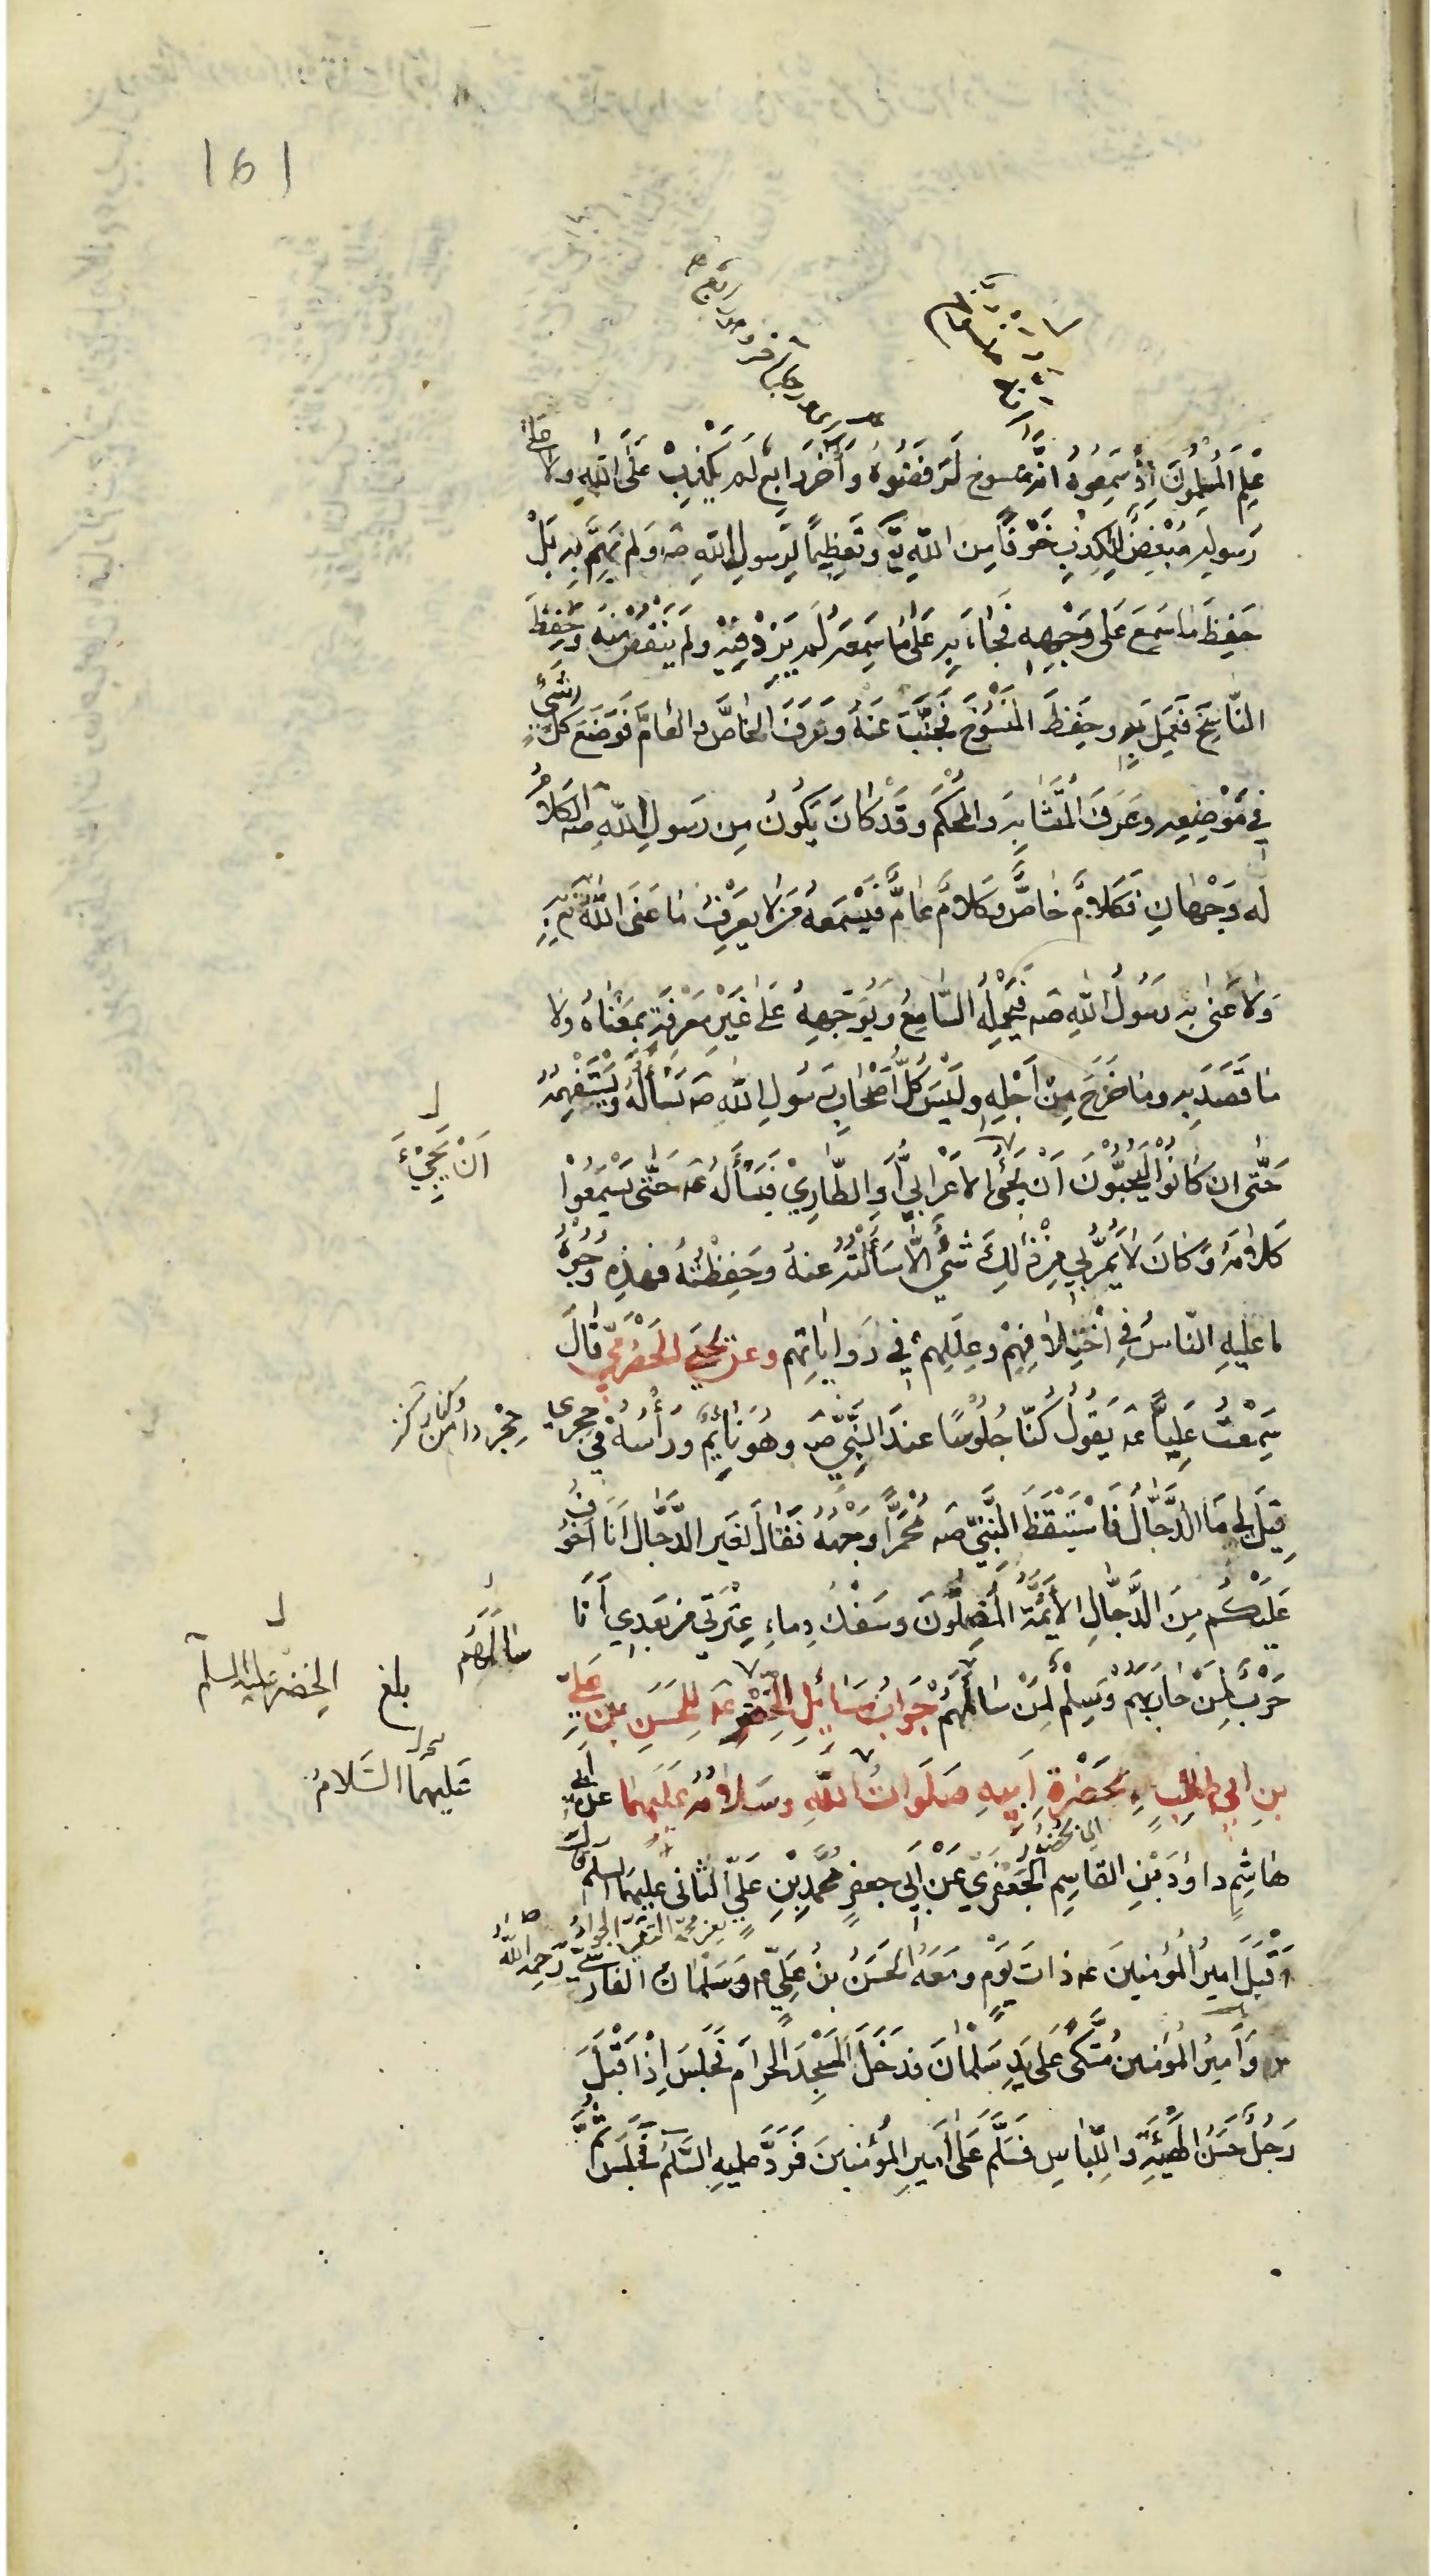 161
عَلِمَ المُسْلِمُونَ إِذْ سَمِعُوهُ انّه مَنسوخ لَرَفَضُوهُ وَآخَرُ رَابِعٌ لَم يَكْذِبْ عَلَى اللّهِ ولا على
رَسولِهِ مُبْغِضٌ لِلكِذبِ خَوْفًا مِن اللّهِ تَع وَتَعظِيمًا لِرَسولِ اللّهِ صه وَلم يَهِمَّ بِهِ بَلْ
حَفِظَ مَا سَمِعَ عَلى وَجْهِهِ فَجَاءَ بِهِ عَلَى مَا سَمِعَهُ لَم يَزِدْ فِيْهِ ولم يَنقُصْ مِنْهُ وَحَفِظَ
النّاسِخَ فَعَمِلَ بِهِ وحَفِظَ المَنْسُوخَ فَجَنَّبَ عَنهُ وَعَرَفَ الخَاصَّ والعَامَّ فَوَضَعَ كلّ شَيْءٍ
فِي مَوْضِعِهِ وعَرَفَ المُتَشَابِهَ وَالمُحْكَمَ وقَدْ كَانَ يَكُونُ مِن رَسولِ اللّهِ صه الكَلامُ
له وَجْهَانِ فَكَلامٌ خاصٌّ وكَلامٌ عَامٌّ فَيَسْمَعهُ مَن لا يَعْرِفُ مَا عَنَى اللّهُ بِهِ
وَلا مَا عَنى بِهِ رَسُولُ اللّهِ صه فَيَحْمِلُهُ السّامِعُ وَيُوَجِّهُهُ عَلى غَيْرِ مَعْرِفَةٍ بِمَعْنَاهُ وَلا
مَا قَصَدَ بِهِ وما خَرَجَ مِنْ أَجْلِهِ ولَيْسَ كلُّ أَصْحَابِ رَسُولِ اللّهِ صه يَسْألُهُ ويَسْتَفْهِمُهُ
حَتّى ان كانُوا لَيُحِبُّونَ اَنْ يَجِيءَ الاَعْرَابِيُّ اَو الطَّارِيْ فَيَسْأَلَهُ عه حَتّى يَسْمَعُوْا
اَنْ يَجِيْءَ
كَلامَهُ وَكَانَ لا يَمُرُّ بِي مِن ذٰلِكَ شَيْءٌ اِلّا سَأَلْتُهُ عنهُ وحَفِظْتُهُ فَهذِهِ وُجُوْهُ
ما عليهِ النّاسُ في اخْتِلافِهِمْ وعِلَلِهِم في رَوَايَاتِهم وعن يحيى الحَضْرَمِيّ قَالَ
سَمِعْتُ عَلِيًّا عه يَقُولُ كُنّا جُلُوسًا عندَ النَّبِيّ صه وهُوَ نَائِمٌ وَرَأْسُهُ فِي حِجْرِي
حِجْر دامن وكنار
قِيْلَ لِي مَا الدَّجَّالُ فَاسْتَيْقَظَ النَّبِيّ صه مُحْمَرًّا وَجْهُهُ فَقَالَ لغَيرُ الدَّجَّالِ اَنَا اَخْوَفُ
عَلَيْكُم مِنَ الدَّجَّالِ الأَئِمَّةُ المُضِلُّونَ وَسَفْكُ دِماءِ عِتْرَتِي مِن بَعدِي أَنَا
حَرْبٌ لِمَنْ حَارَبَهُمْ وَسِلْمٌ لِمَنْ سَالَمَهُمْ جَوابُ مَسَائِلِ الخِضْرِ عه لِلحَسَنِ بْنِ عَلِيِّ
سَالَمَهُم
بلغ
الخِضْر عليه السلم
بنِ ابي طالِبٍ بِحَضْرَةِ اَبِيهِ صَلَوَاتُ اللّهِ وسَلامُهُ عَلَيهِمَا عن أبي
عَلَيهِمَا السّلامُ
اي بحضُور
هَاشِمٍ داوُدَ بْنِ القاسِمِ الجَعْفَرِيّ عَنْ أَبِي جعفرٍ مُحَمّدِ بْنِ عَلِيٍّ الثّاني عليهِمَا السلم قال
اَقْبَلَ اَمِيرُ المُؤْمِنِينَ عه ذاتَ يَوْمٍ ومَعَهُ الحَسَنُ بنُ عَلِيّ وَسَلْمَانُ الفَارِسِيُّ رحمه اللّهُ
وَاَمِيرُ المُؤمنينَ مُتَّكِئٌ عَلى يَدِ سَلْمَانَ فدَخَلَ المَسْجِدَ الحرامَ فَجَلَسَ اِذْ اَقْبَلَ
رَجُلٌ حَسَنُ الهَيْئَةِ وَاللِّبَاسِ فَسَلَّمَ عَلَى اَمِيرِ المُؤمنينَ فَرَدَّ عليهِ السَّلَمَ فَجَلَسَ ثُمَّ